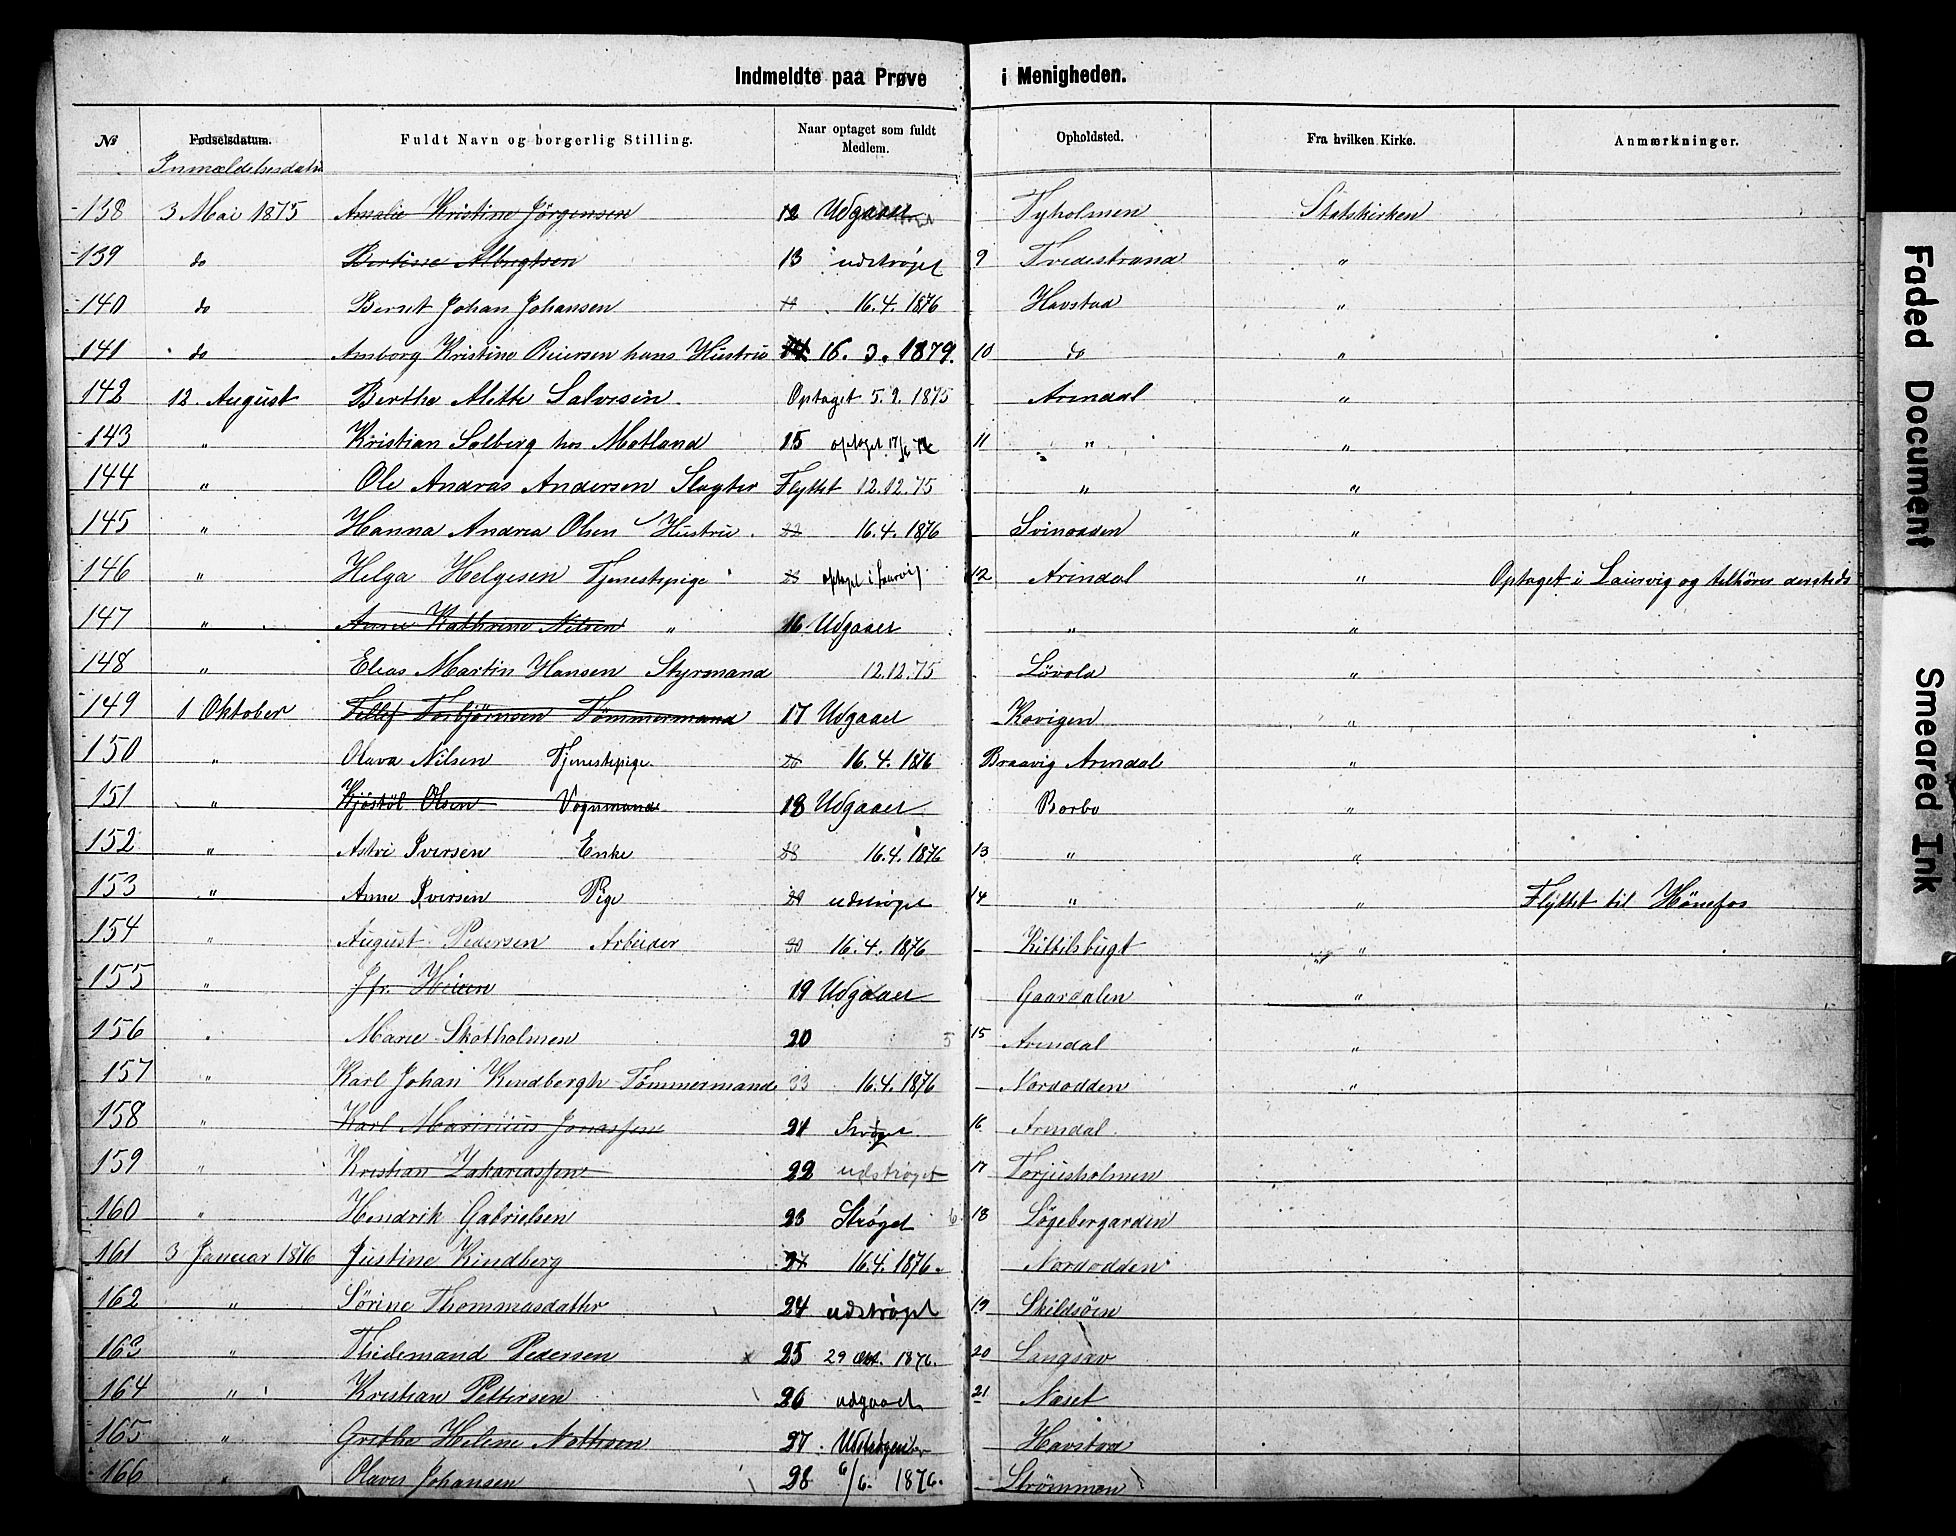 Indmeldte paa Prøve i Menigheden.
№ Fødselsdatum. Fuldt Navn og borgerlig Stilling. Naar optaget som fuldt Medlem. Opholdsted. Fra hvilken Kirke. Anmærkninger.
Inmældelsesdatu
138 3 Mai 1875 Amalie Kristine Jörgensen 12 Udgaaet Tyholmen Statskirken
139 do Bertine Albregtsen 13 udströget 9 Tvedestrand "
140 do Bernt Johan Johansen 16.4.1876 Havstad "
141 do Amborg Kristine Reiersen hans Hustru 16.3.1879. 10 do "
142 12 August Berthe Alette Salvesen Optaget 5.9.1875 Arendal "
143 " Kristian Solberg hos Motland 15 optaget 11 " "
144 " Ole Andras Andersen Slagter Flyttet 12.12.75 " "
145 " Hanna Andrea Olsen Hustru. 16.4.1876 Svinodden "
146 " Helga Helgesen Tjenestepige optaget i Laurvig. 12 Arendal " Optaget i Laurvig og tilhörer dersteds
147 " Anne Kathrine Nilsen " 16 Udgaaet " "
148 " Elias Martin Hansen Styrmand 12.12.75 Lövold "
149 1 Oktober Tellef Torbjörnsen Tömmermand 17 Udgaaet Kovigen "
150 " Olava Nilsen Tjenestepige. 16.4.1876 Braavig Arendal "
151 " Kjöstöl Olsen Vognmand 18 Udgaaet Barbo "
152 " Astri Iversen Enke 16.4.1876 13 " "
153 " Anne Iversen Pige udströget 14 " " Flyttet til Hönefos
154 " August Pedersen Arbeider 30 16.4.1876 Kittilsbugt "
155 " Jfr. 19 Udgaaet Gaardalen "
156 " Marie Skotholmen 20 5 15 Arendal "
157 " Karl Johan Kindbergh Tömmermand 33 16.4.1876 Nordodden "
158 " Karl Marinius Jonassen 21 16 Arendal
159 " Kristian Zakariassen 22 udströget 17 Torjusholmen
160 " Hendrik Gabrielsen 23 Ströget 6 18 Lögebergarden
161 3 Januar 1876 Justine Kindberg 16.4.1876. Nordodden
162 " Sörine Thommasdatter 24 udströget 19 Skildsöen
163 " Thidemand Pedersen x 25 29 Okt. 1876. 20 Langsæv
164 " Kristian Pettersen 26 udgaaet 21 Naset
165 " Grethe Helene Nathsen 27 Havstad
166 " Olaves Johansen 28 6/6. 1876. Strömmen
Faded Document
Smeared Ink